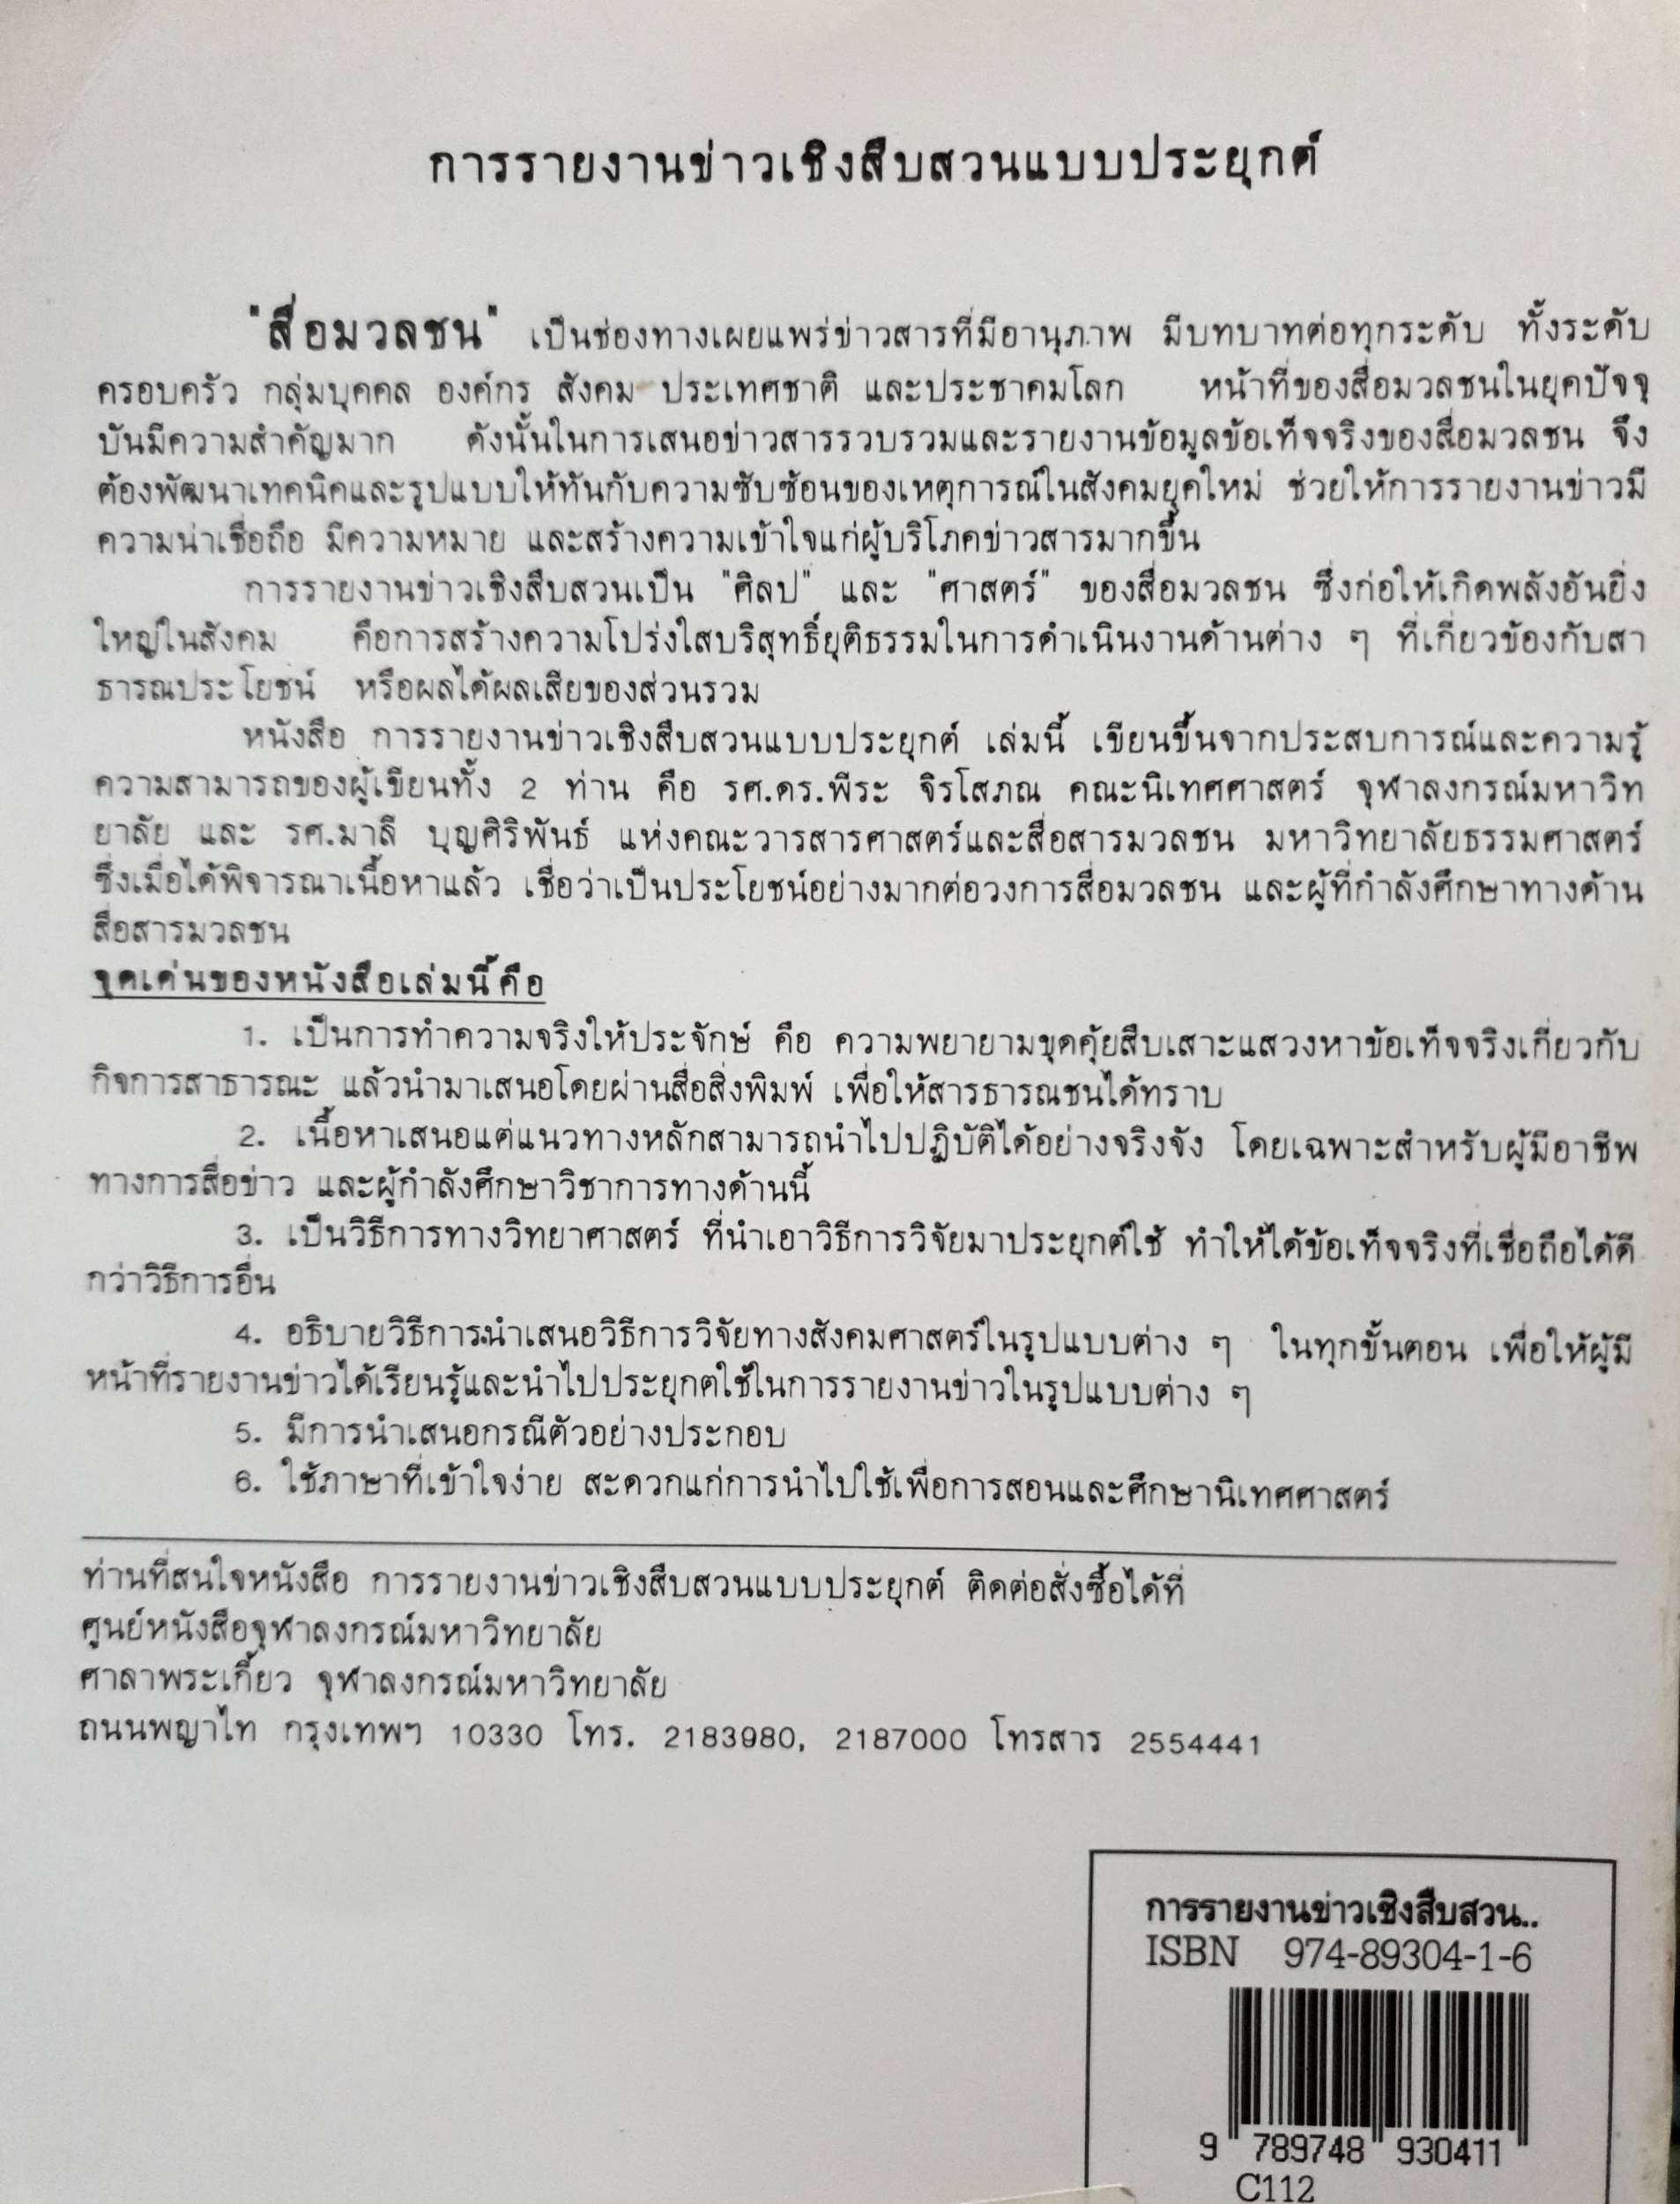 การรายงานข่าวเชิงสืบสวนแบบประยุกต์
"สื่อมวลชน" เป็นช่องทางเผยแพร่ข่าวสารที่มีอานุภาพ มีบทบาทต่อทุกระดับ ทั้งระดับ
ครอบครัว กลุ่มบุคคล องค์กร สังคม ประเทศชาติ และประชาคมโลก หน้าที่ของสื่อมวลชนในยุคปัจจุ
บันมีความสำคัญมาก ดังนั้นในการเสนอข่าวสารรวบรวมและรายงานข้อมูลข้อเท็จจริงของสื่อมวลชน จึง
ต้องพัฒนาเทคนิคและรูปแบบให้ทันกับความซับซ้อนของเหตุการณ์ในสังคมยุคใหม่ ช่วยให้การรายงานข่าวมี
ความน่าเชื่อถือ มีความหมาย และสร้างความเข้าใจแก่ผู้บริโภคข่าวสารมากขึ้น
การรายงานข่าวเชิงสืบสวนเป็น "ศิลป" และ "ศาสตร์" ของสื่อมวลชน ซึ่งก่อให้เกิดพลังอันยิ่ง
ใหญ่ในสังคม คือการสร้างความโปร่งใสบริสุทธิ์ยุติธรรมในการดำเนินงานด้านต่าง ๆ ที่เกี่ยวข้องกับสา
ธารณประโยชน์ หรือผลได้ผลเสียของส่วนรวม
หนังสือ การรายงานข่าวเชิงสืบสวนแบบประยุกต์ เล่มนี้ เขียนขึ้นจากประสบการณ์และความรู้
ความสามารถของผู้เขียนทั้ง 2 ท่าน คือ รศ.ดร.พีระ จิรโสภณ คณะนิเทศศาสตร์ จุฬาลงกรณ์มหาวิท
ยาลัย และ รศ.มาลี บุญศิริพันธ์ แห่งคณะวารสารศาสตร์และสื่อสารมวลชน มหาวิทยาลัยธรรมศาสตร์
ซึ่งเมื่อได้พิจารณาเนื้อหาแล้ว เชื่อว่าเป็นประโยชน์อย่างมากต่อวงการสื่อมวลชน และผู้ที่กำลังศึกษาทางด้าน
สื่อสารมวลชน
จุดเด่นของหนังสือเล่มนี้คือ
1. เป็นการทำความจริงให้ประจักษ์ คือ ความพยายามขุดคุ้ยสืบเสาะแสวงหาข้อเท็จจริงเกี่ยวกับ
กิจการสาธารณะ แล้วนำมาเสนอโดยผ่านสื่อสิ่งพิมพ์ เพื่อให้สารธารณชนได้ทราบ
2. เนื้อหาเสนอแต่แนวทางหลักสามารถนำไปปฏิบัติได้อย่างจริงจัง โดยเฉพาะสำหรับผู้มีอาชีพ
ทางการสื่อข่าว และผู้กำลังศึกษาวิชาการทางด้านนี้
3. เป็นวิธีการทางวิทยาศาสตร์ ที่นำเอาวิธีการวิจัยมาประยุกต์ใช้ ทำให้ได้ข้อเท็จจริงที่เชื่อถือได้ดี
กว่าวิธีการอื่น
4. อธิบายวิธีการนำเสนอวิธีการวิจัยทางสังคมศาสตร์ในรูปแบบต่าง ๆ ในทุกขั้นตอน เพื่อให้ผู้มี
หน้าที่รายงานข่าวได้เรียนรู้และนำไปประยุกตใช้ในการรายงานข่าวในรูปแบบต่าง ๆ
5. มีการนำเสนอกรณีตัวอย่างประกอบ
6. ใช้ภาษาที่เข้าใจง่าย สะดวกแก่การนำไปใช้เพื่อการสอนและศึกษานิเทศศาสตร์
ท่านที่สนใจหนังสือ การรายงานข่าวเชิงสืบสวนแบบประยุกต์ ติดต่อสั่งซื้อได้ที่
ศูนย์หนังสือจุฬาลงกรณ์มหาวิทยาลัย
ศาลาพระเกี้ยว จุฬาลงกรณ์มหาวิทยาลัย
ถนนพญาไท กรุงเทพฯ 10330 โทร. 2183980, 2187000 โทรสาร 2554441
การรายงานข่าวเชิงสืบสวน..
ISBN 974-89304-1-6
9 789748 930411
C112